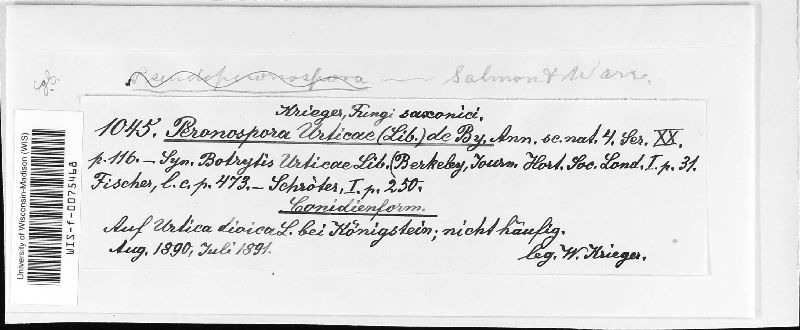 cgs.
Pseudoperonospora — Salmon & Ware.
Krieger, Fungi saxonici.
1045. Peronospora Urticae (Lib.) de By. Ann. sc. nat. 4. Ser. XX.
p. 116. – Syn. Botrytis Urticae Lib. (Berkeley, Journ. Hort. Soc. Lond. I. p. 31.
Fischer, l. c. p. 473. – Schröter, I. p. 250.
Conidienform.
Auf Urtica dioica L. bei Königstein; nicht häufig.
Aug. 1890, Juli 1891.
leg. W. Krieger.
University of Wisconsin-Madison (WIS)
WIS-f-0075468